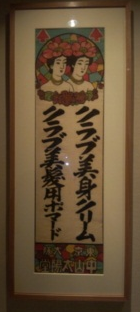 クラブ美身クリーム
クラブ美髪用ポマード
東京
大阪
中山太陽堂